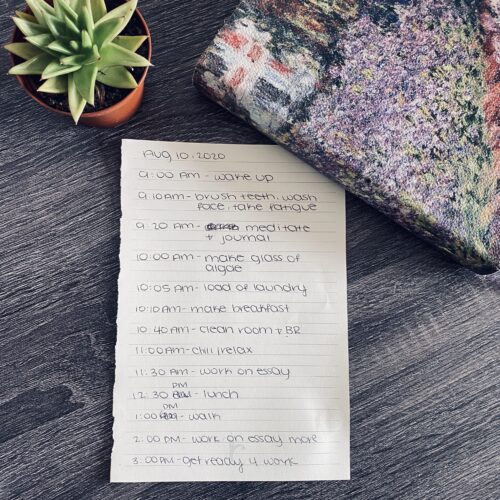 Aug 10, 2020
9:00 AM - wake up
9:10 AM - brush teeth, wash
face, take fatigue
9:20 AM - meditate
+ journal
10:00 AM - make glass of
algae
10:05 AM - load of laundry
10:10 AM - make breakfast
10:40 AM - clean room + BR
11:00 AM - chill/relax
11:30 AM - work on essay
12:30 PM - lunch
1:00 PM - walk
2:00 PM - work on essay more
3:00 PM - get ready 4 work